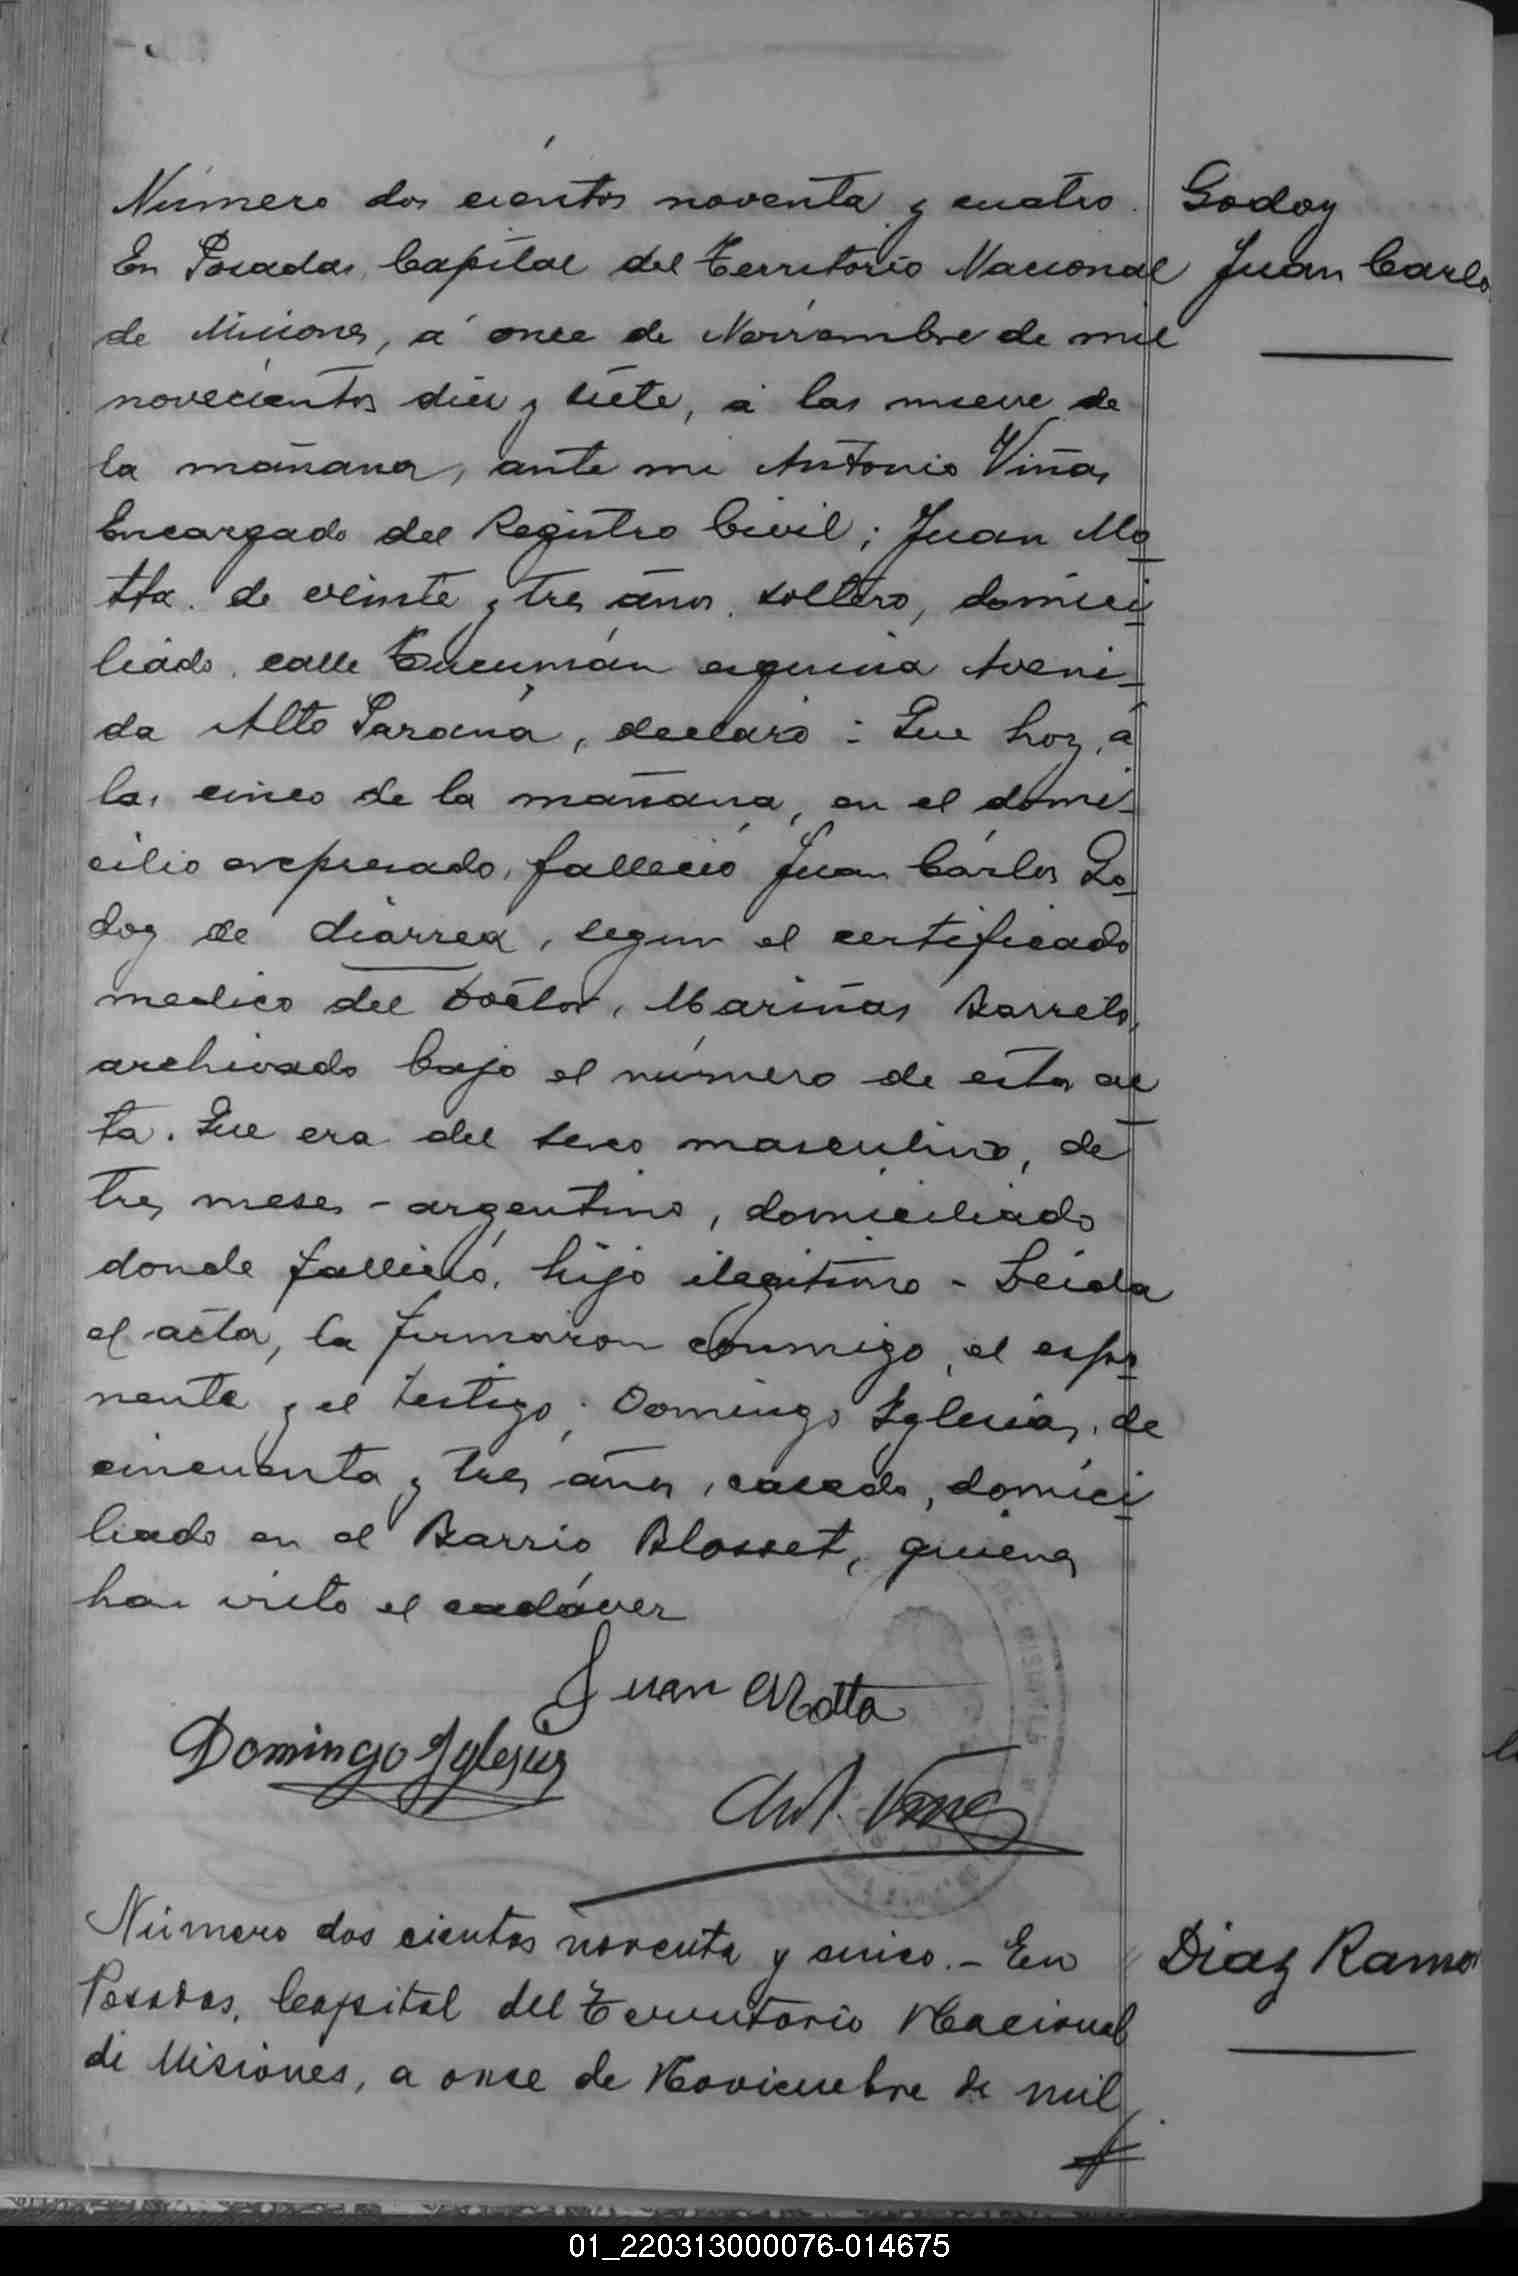 Número dos cientos noventa y cuatro.
Godoy
En Posadas, Capital del Territorio Nacional
Juan Carlo
de Misiones, á once de Noviembre de mil
novecientos diez y siete, á las nueve de
la mañana, ante mi Antonio Viñas
Encargado del Registro Civil; Juan Mo
tta. de veinte y tres años. soltero, domici
liado, calle Tucumán esquina Aveni-
da Alto Paraná, declaró: Que hoy, á
las cinco de la mañana, en el domi-
cilio expresado, falleció Juan Cárlos Go
doy de diarrea, segun el certificado
medico del Doctor, Mariñas Barreto,
archivado bajo el número de esta ac
ta. Que era del sexo masculino, de
tres meses - argentino, domiciliado
donde falleció, hijo ilegitimo - Leida
el acta, la firmaron conmigo, el expo
nente y el testigo; Domingo Iglesias, de
cincuenta y tres años, casado, domici
liado en el Barrio Blosset, quienes
han visto el cadáver
Juan Motta
Domingo Iglesias
Ant. Viñas
Número dos cientos noventa y cinco. - En
Diaz Ramo
Posadas, Capital del Territorio Nacional
de Misiones, a once de Noviembre de mil
01_220313000076-014675